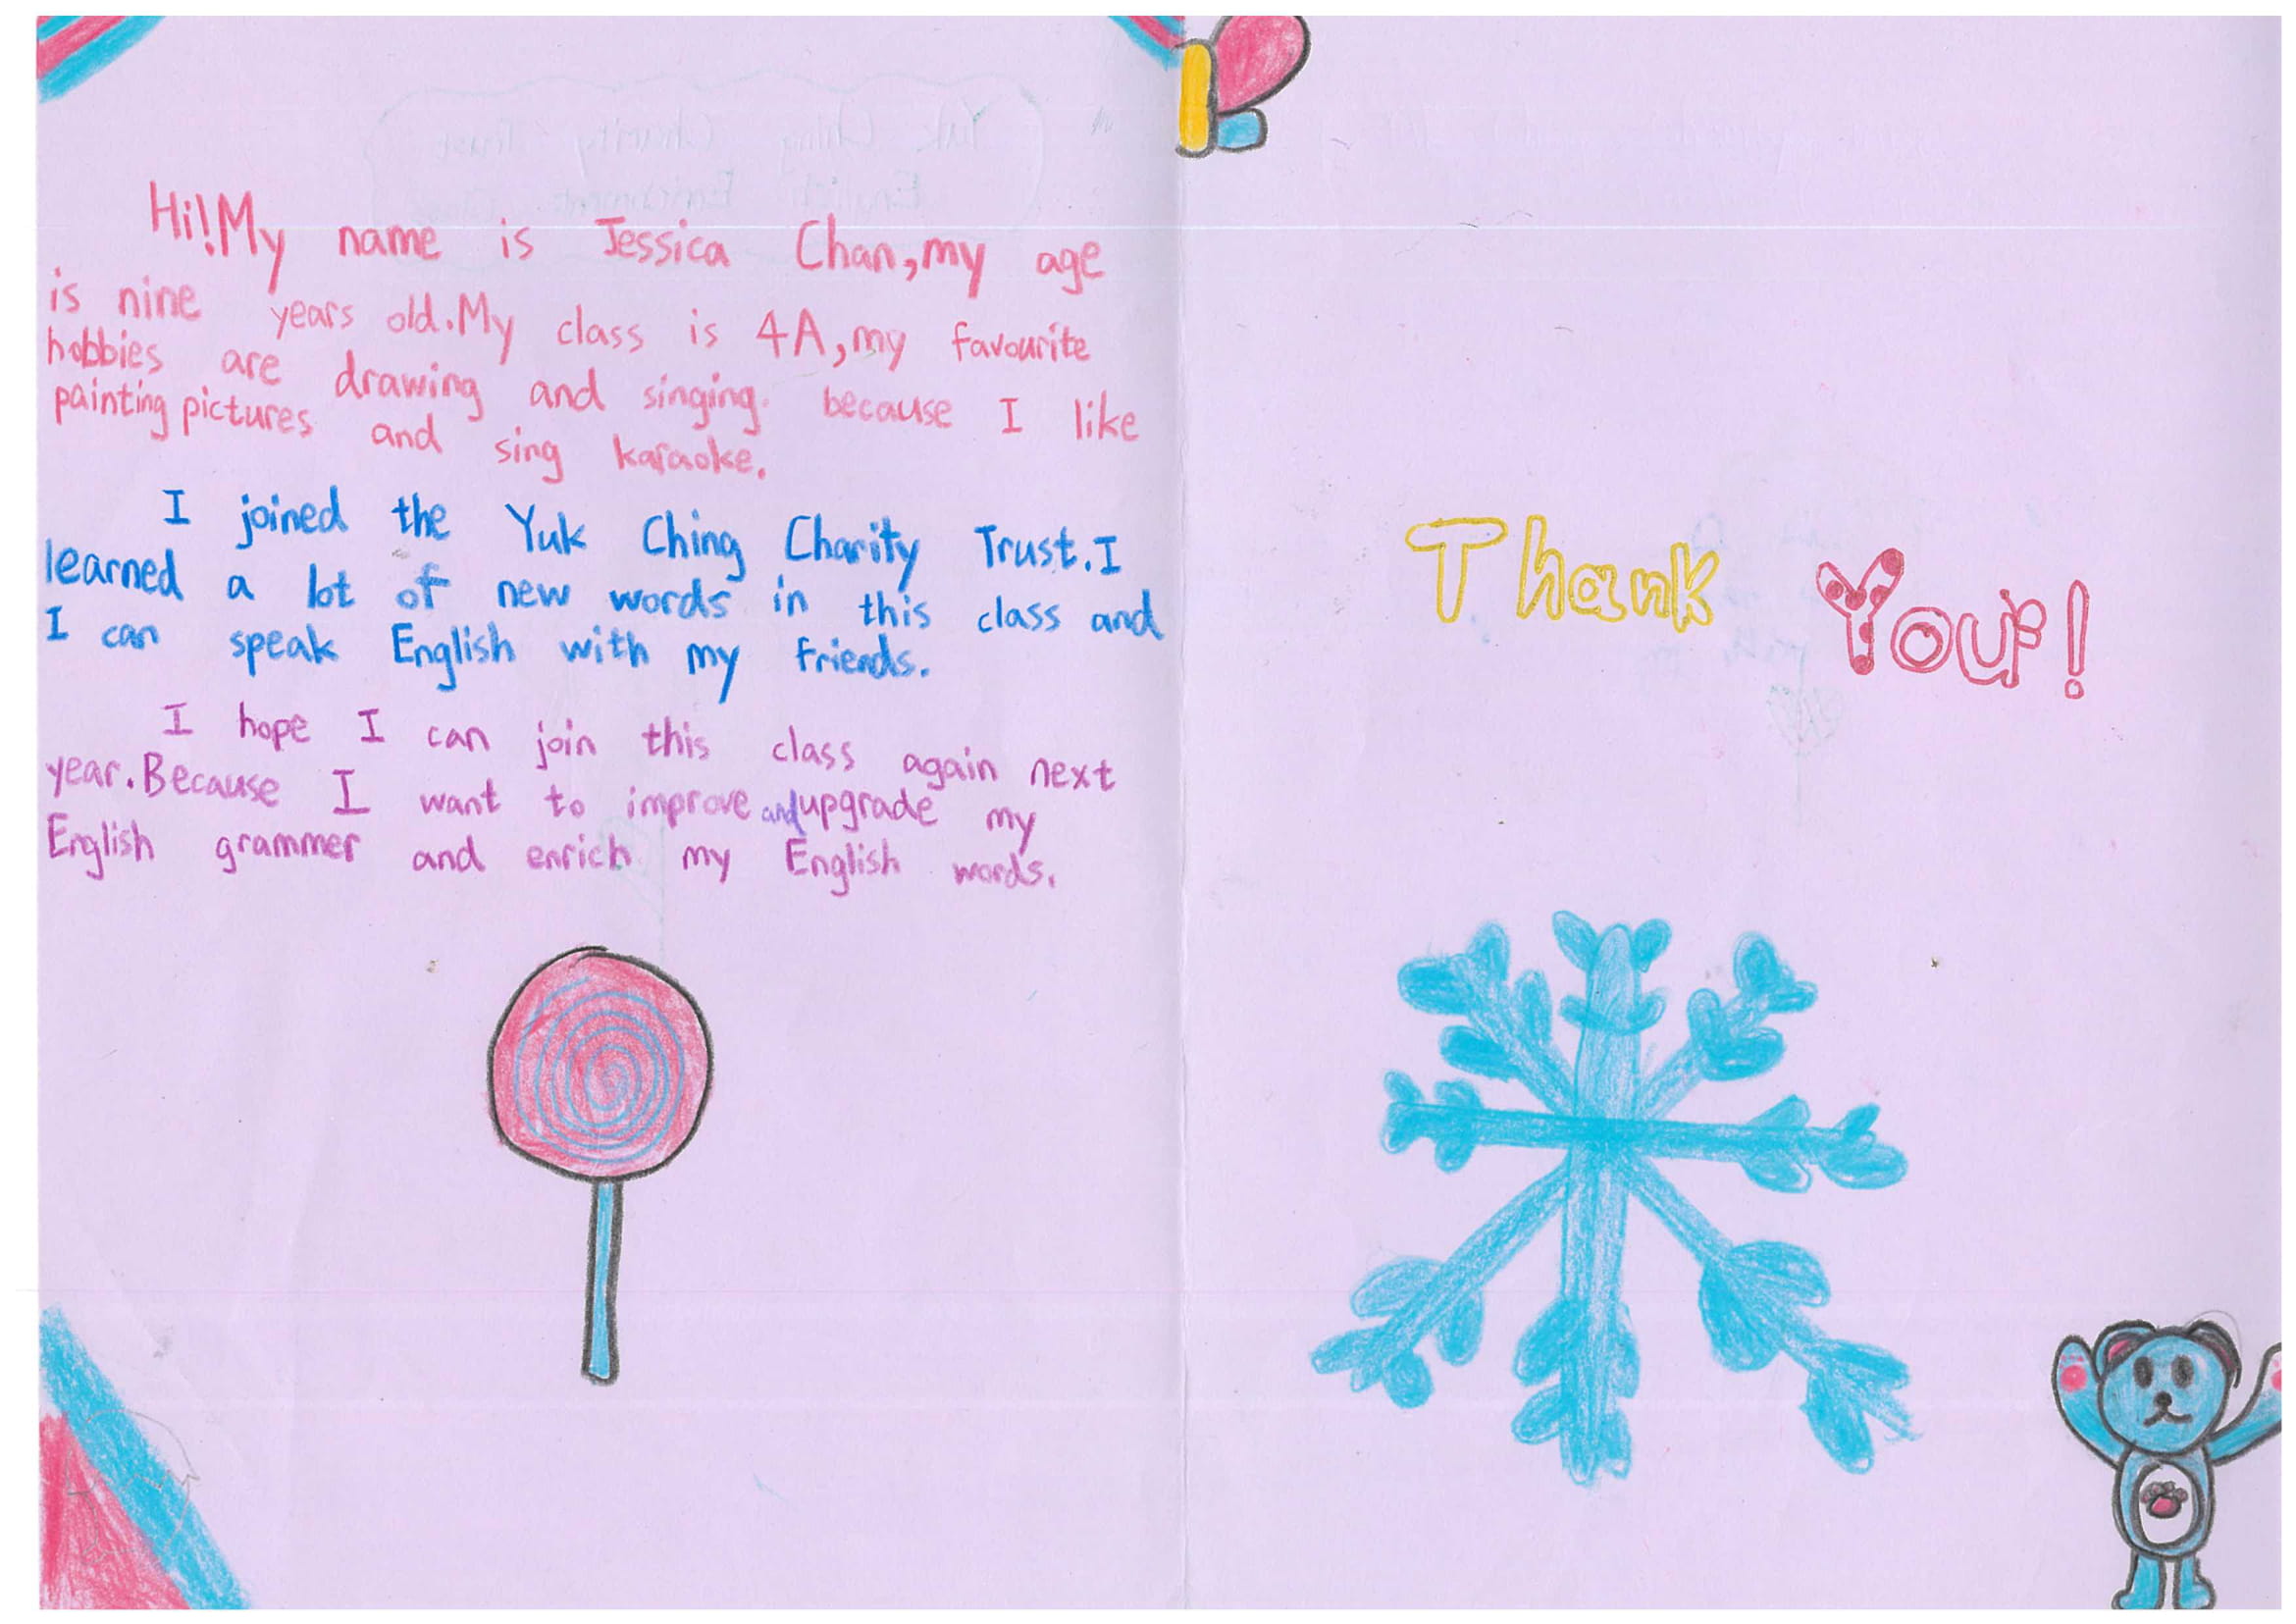 Hi!My name is Jessica Chan,my age
is nine years old.My class is 4A,my favourite
hobbies are drawing and singing. because I like
painting pictures and sing karaoke.
I joined the Yuk Ching Charity Trust.I
learned a lot of new words in this class and
I can speak English with my friends.
I hope I can join this class again next
year.Because I want to improve and upgrade my
English grammer and enrich my English words.
Thank You!
Yuk Ching Charity Trust